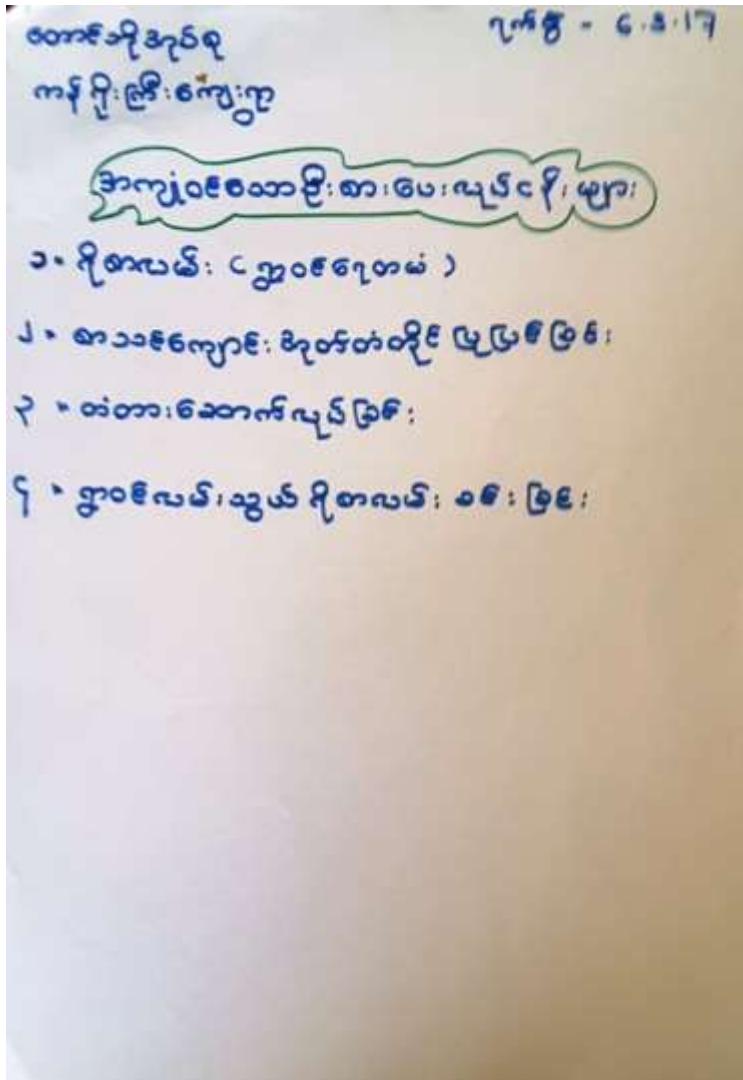 တောင်ဘို့အုပ်စု
ရက်စွဲ - 6.3.17
ကန်ရိုးကြီးကျေးရွာ
အကျုံးဝင်သောဦးစားပေးလုပ်ငန်းများ
၁။ ရိုစာလမ်း (ရွာဝင်ရေတမံ)
၂။ စာသင်ကျောင်းအုတ်တံတိုင်း ပြုပြင်ခြင်း
၃။ တံတားဆောက်လုပ်ခြင်း
၄။ ရွာဝင်လမ်းသွယ် ရိုစာလမ်းခင်းခြင်း